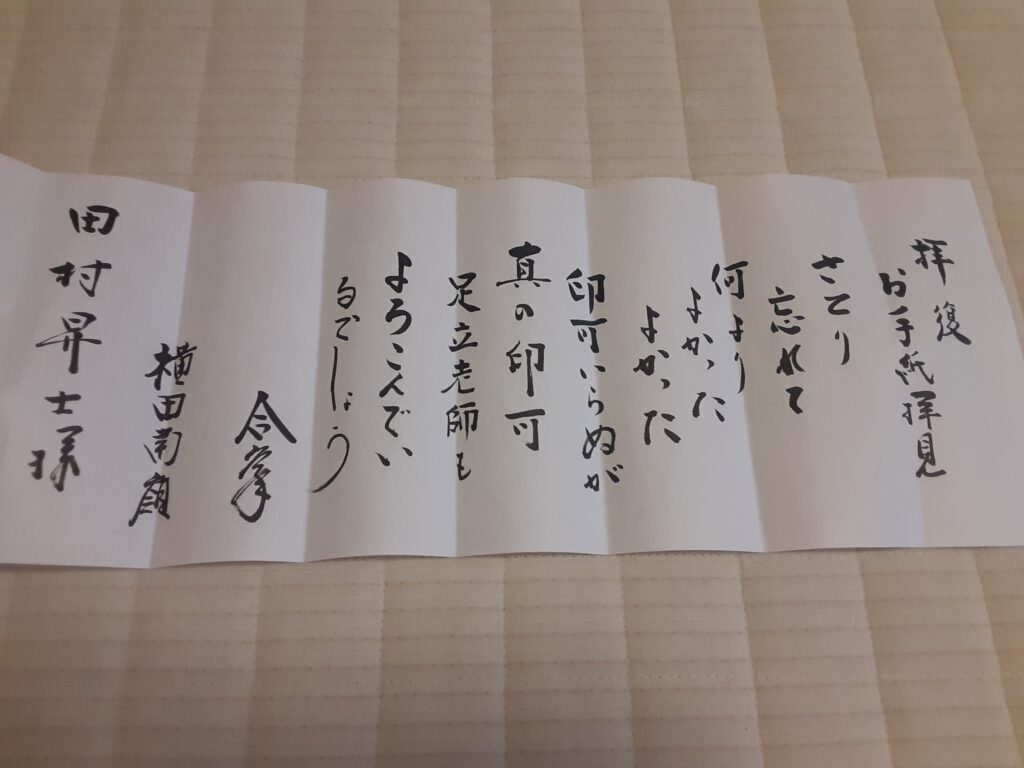 拝復
お手紙拝見
さとり
忘れて
何より
よかった
よかった
印可いらぬが
真の印可
足立老師も
よろこんでい
るでしょう
合掌
横田南嶺
田村昇士様